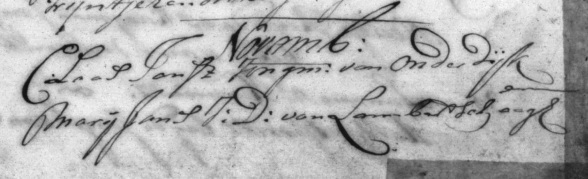 Novemb:
Claas Jansz Jongm: van Oudesdijk en
Marij Jans J: D: van Lambertschaagh